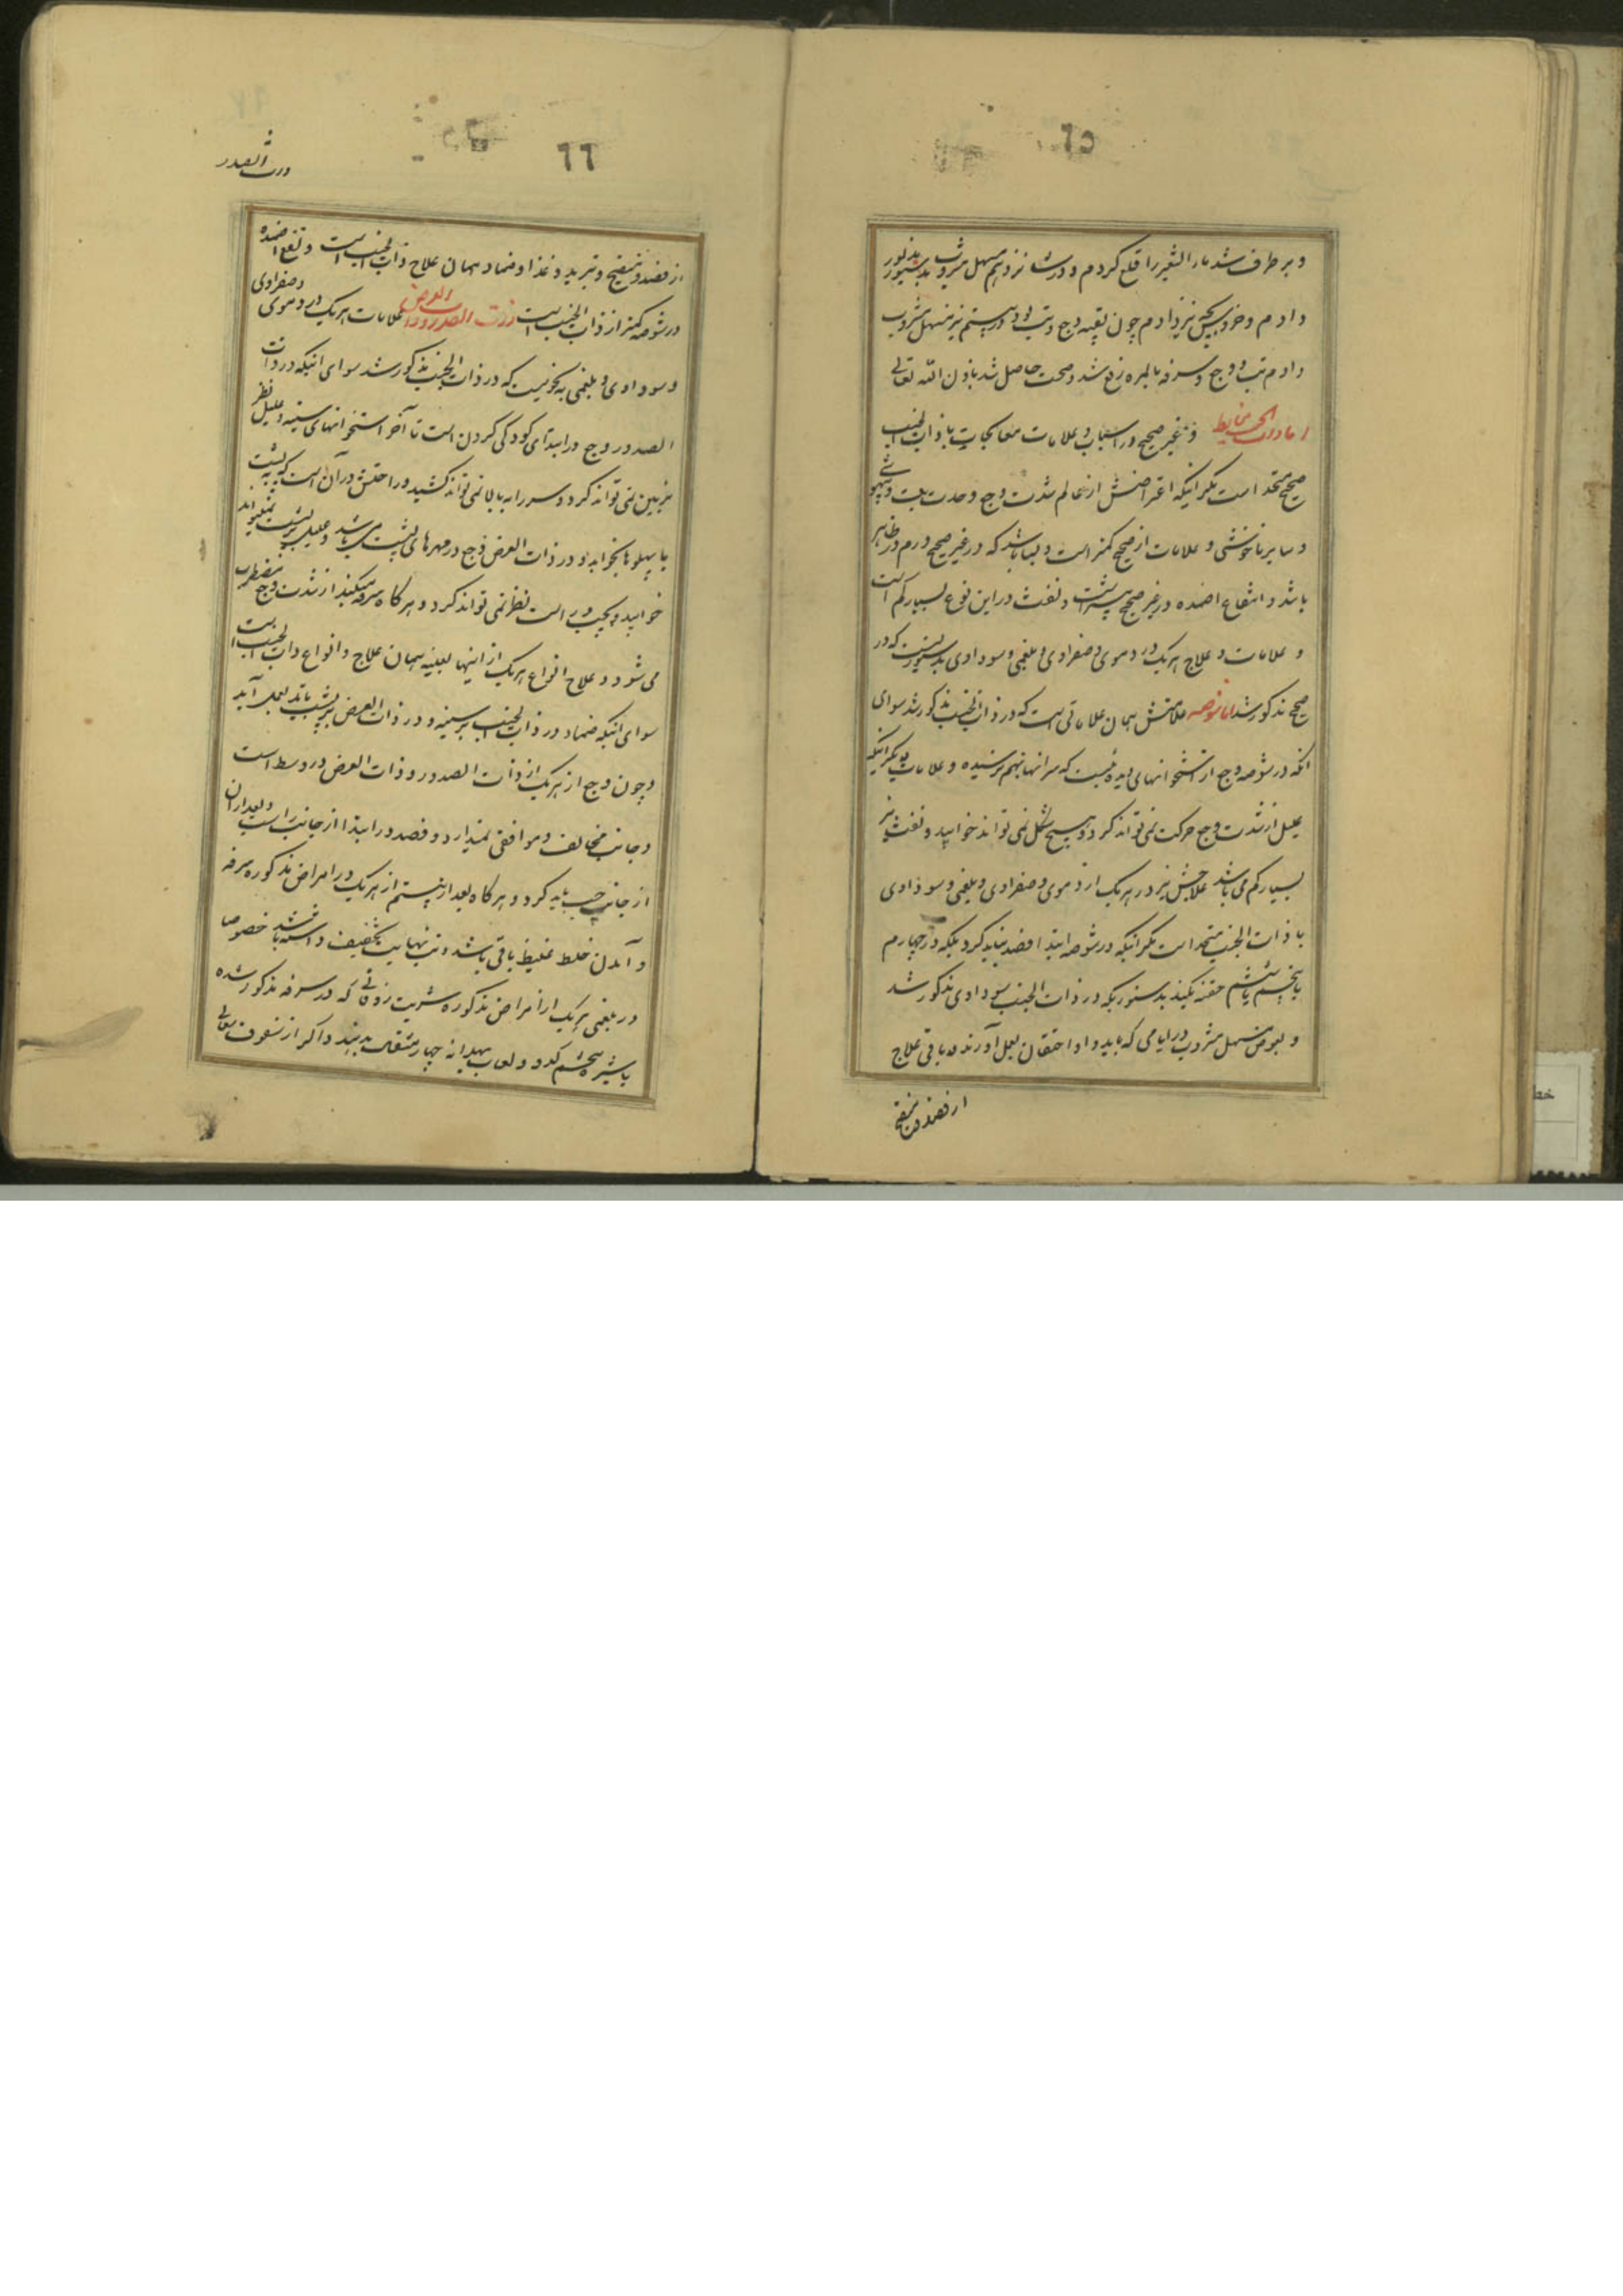 ٦٥
و برطرف شد ماء الشعیر را قطع کردم و در شانزدهم مسهل مشروب بدستور
دادم و خرد بچین نیز دادم چون بقیه وجع و تب بود در بیستم نیز مسهل مشروب
دادم تب و وجع و سرفه بالمره رفع شد و صحت حاصل شد باذن الله تعالی
اما ذات الجنب غیر صحیح در اسباب و علامات و معالجات با ذات الجنب
صحیح متحد است مگر اینکه اعراضش از عالم شدت وجع و حدت تب و تهوع
و سایر ناخوشی و علامات از صحیح کمتر است و بسا باشد که در غیر صحیح ورم در ظاهر
باشد و انتفاع اضمده در غیر صحیح بیشتر است و نفث در این نوع بسیار کم است
و علامات و علاج هر یک در دموی و صفراوی و بلغمی و سوداوی بدستوریست که در
صحیح مذکور شد اما شوصه علامتش همان علاماتی است که در ذات الجنب مذکور شد سوای
آنکه در شوصه وجع از استخوانهای است که سر آنها بهم نرسیده و علامات دیگر اینکه
علیل از شدت وجع حرکت نمی تواند کرد و بهیچ شکل نمی تواند خوابید و نفث نیز
بسیار کم می باشد علاجش نیز در هر یک از دموی و صفراوی و بلغمی و سوداوی
با ذات الجنب متحد است مگر اینکه در شوصه ابتدا فصد نباید کرد بلکه در چهارم
یا پنجم یا ششم حقنه بکنند بدستوری که در ذات الجنب سوداوی مذکور شد
و بعوض مسهل مشروب در ایامی که باید داد احتقان بعمل آورند و باقی علاج
از فصد و تنقیح
٦٦
ذات الصدر
از فصد و تنقیح و تبرید و غذا و ضماد همان علاج ذات الجنب است و نفع اضمده
در شوصه کمتر از ذات الجنب است ذات الصدر و ذات العرض علامات هر یک در دموی و صفراوی
و سوداوی و بلغمی به نحویست که در ذات الجنب مذکور شد سوای اینکه در ذات
الصدر وجع در ابتدای گودی گردن است تا آخر استخوانهای سینه و علیل نظر
بزمین نمی تواند کرد و سر را به بالا نمی تواند کشید و راحتش در آن است که به پشت
یا پهلو ها بخوابد و در ذات العرض وجع در مهرهای پشت می باشد و علیل بر پشت نمیتواند
خوابید و بچپ و راست نظر نمی تواند کرد و هر گاه سرفه میکند از شدت وجع مضطرب
می شود و علاج انواع هر یک از اینها بعینه همان علاج و انواع ذات الجنب است
سوای اینکه ضماد در ذات الجنب بر سینه و در ذات العرض بر پشت باید بعمل آید
و چون وجع از هر یک از ذات الصدر و ذات العرض در وسط است
و جانب مخالف و موافقی نمیدارد و فصد در ابتدا از جانب راست و بعد از آن
از جانب چپ باید کرد و هر گاه بعد از بیستم از هر یک در امراض مذکوره سرفه
و آمدن خلط غلیظ باقی باشد و تب نهایت تخفیف داشته باشد خصوصا
در بلغمی هر یک از امراض مذکوره شربت زوفائی که در سرفه مذکور شده
با شیره تخم کدو و لعاب بهدانه چهار مثقال بدهند و اگر از سفوف سعالی